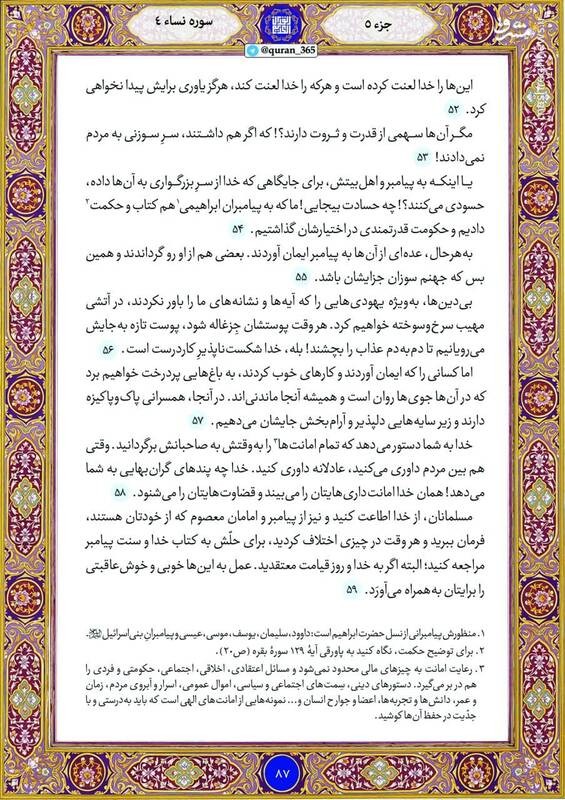 سوره نساء ٤
جزء ٥
@quran_365
مشرق
این‌ها را خدا لعنت کرده است و هرکه را خدا لعنت کند، هرگز یاوری برایش پیدا نخواهی
کرد. ۵۲
مگر آن‌ها سهمی از قدرت و ثروت دارند؟! که اگر هم داشتند، سرِ سوزنی به مردم
نمی‌دادند! ۵۳
یا اینکه به پیامبر و اهل‌بیتش، برای جایگاهی که خدا از سرِ بزرگواری به آن‌ها داده،
حسودی می‌کنند؟! چه حسادت بیجایی! ما که به پیامبران ابراهیمی۱ هم کتاب و حکمت۲
دادیم و حکومت قدرتمندی در اختیارشان گذاشتیم. ۵۴
به‌هرحال، عده‌ای از آن‌ها به پیامبر ایمان آوردند. بعضی هم از او رو گرداندند و همین
بس که جهنم سوزان جزایشان باشد. ۵۵
بی‌دین‌ها، به‌ویژه یهودی‌هایی را که آیه‌ها و نشانه‌های ما را باور نکردند، در آتشی
مهیب سرخ‌وسوخته خواهیم کرد. هر وقت پوستشان جِزغاله شود، پوست تازه به‌جایش
می‌رویانیم تا دم‌به‌دم عذاب را بچشند! بله، خدا شکست‌ناپذیرِ کاردرست است. ۵۶
اما کسانی را که ایمان آوردند و کارهای خوب کردند، به باغ‌هایی پردرخت خواهیم برد
که در آن‌ها جوی‌ها روان است و همیشه آنجا ماندنی‌اند. در آنجا، همسرانی پاک‌وپاکیزه
دارند و زیر سایه‌هایی دلپذیر و آرام‌بخش جایشان می‌دهیم. ۵۷
خدا به شما دستور می‌دهد که تمام امانت‌ها۳ را به‌وقتش به صاحبانش برگردانید. وقتی
هم بین مردم داوری می‌کنید، عادلانه داوری کنید. خدا چه پندهای گران‌بهایی به شما
می‌دهد! همان خدا امانت‌داری‌هایتان را می‌بیند و قضاوت‌هایتان را می‌شنود. ۵۸
مسلمانان، از خدا اطاعت کنید و نیز از پیامبر و امامان معصوم که از خودتان هستند،
فرمان ببرید و هر وقت در چیزی اختلاف کردید، برای حلّش به کتاب خدا و سنت پیامبر
مراجعه کنید؛ البته اگر به خدا و روز قیامت معتقدید. عمل به این‌ها خوبی و خوش‌عاقبتی
را برایتان به‌همراه می‌آورَد. ۵۹
۱. منظورش پیامبرانی از نسل حضرت ابراهیم است: داوود، سلیمان، یوسف، موسی، عیسی و پیامبرانِ بنی‌اسرائیل.
۲. برای توضیح حکمت، نگاه کنید به پاورقی آیهٔ ۱۲۹ سورهٔ بقره (ص۲۰).
۳. رعایت امانت به چیزهای مالی محدود نمی‌شود و مسائل اعتقادی، اخلاقی، اجتماعی، حکومتی و فردی را
هم در بر می‌گیرد. دستورهای دینی، سِمت‌های اجتماعی و سیاسی، اموال عمومی، اسرار و آبروی مردم، زمان
و عمر، دانش‌ها و تجربه‌ها، اعضا و جوارح انسان و... نمونه‌هایی از امانت‌های الهی است که باید به‌درستی و با
جدّیت در حفظ آن‌ها کوشید.
۸۷